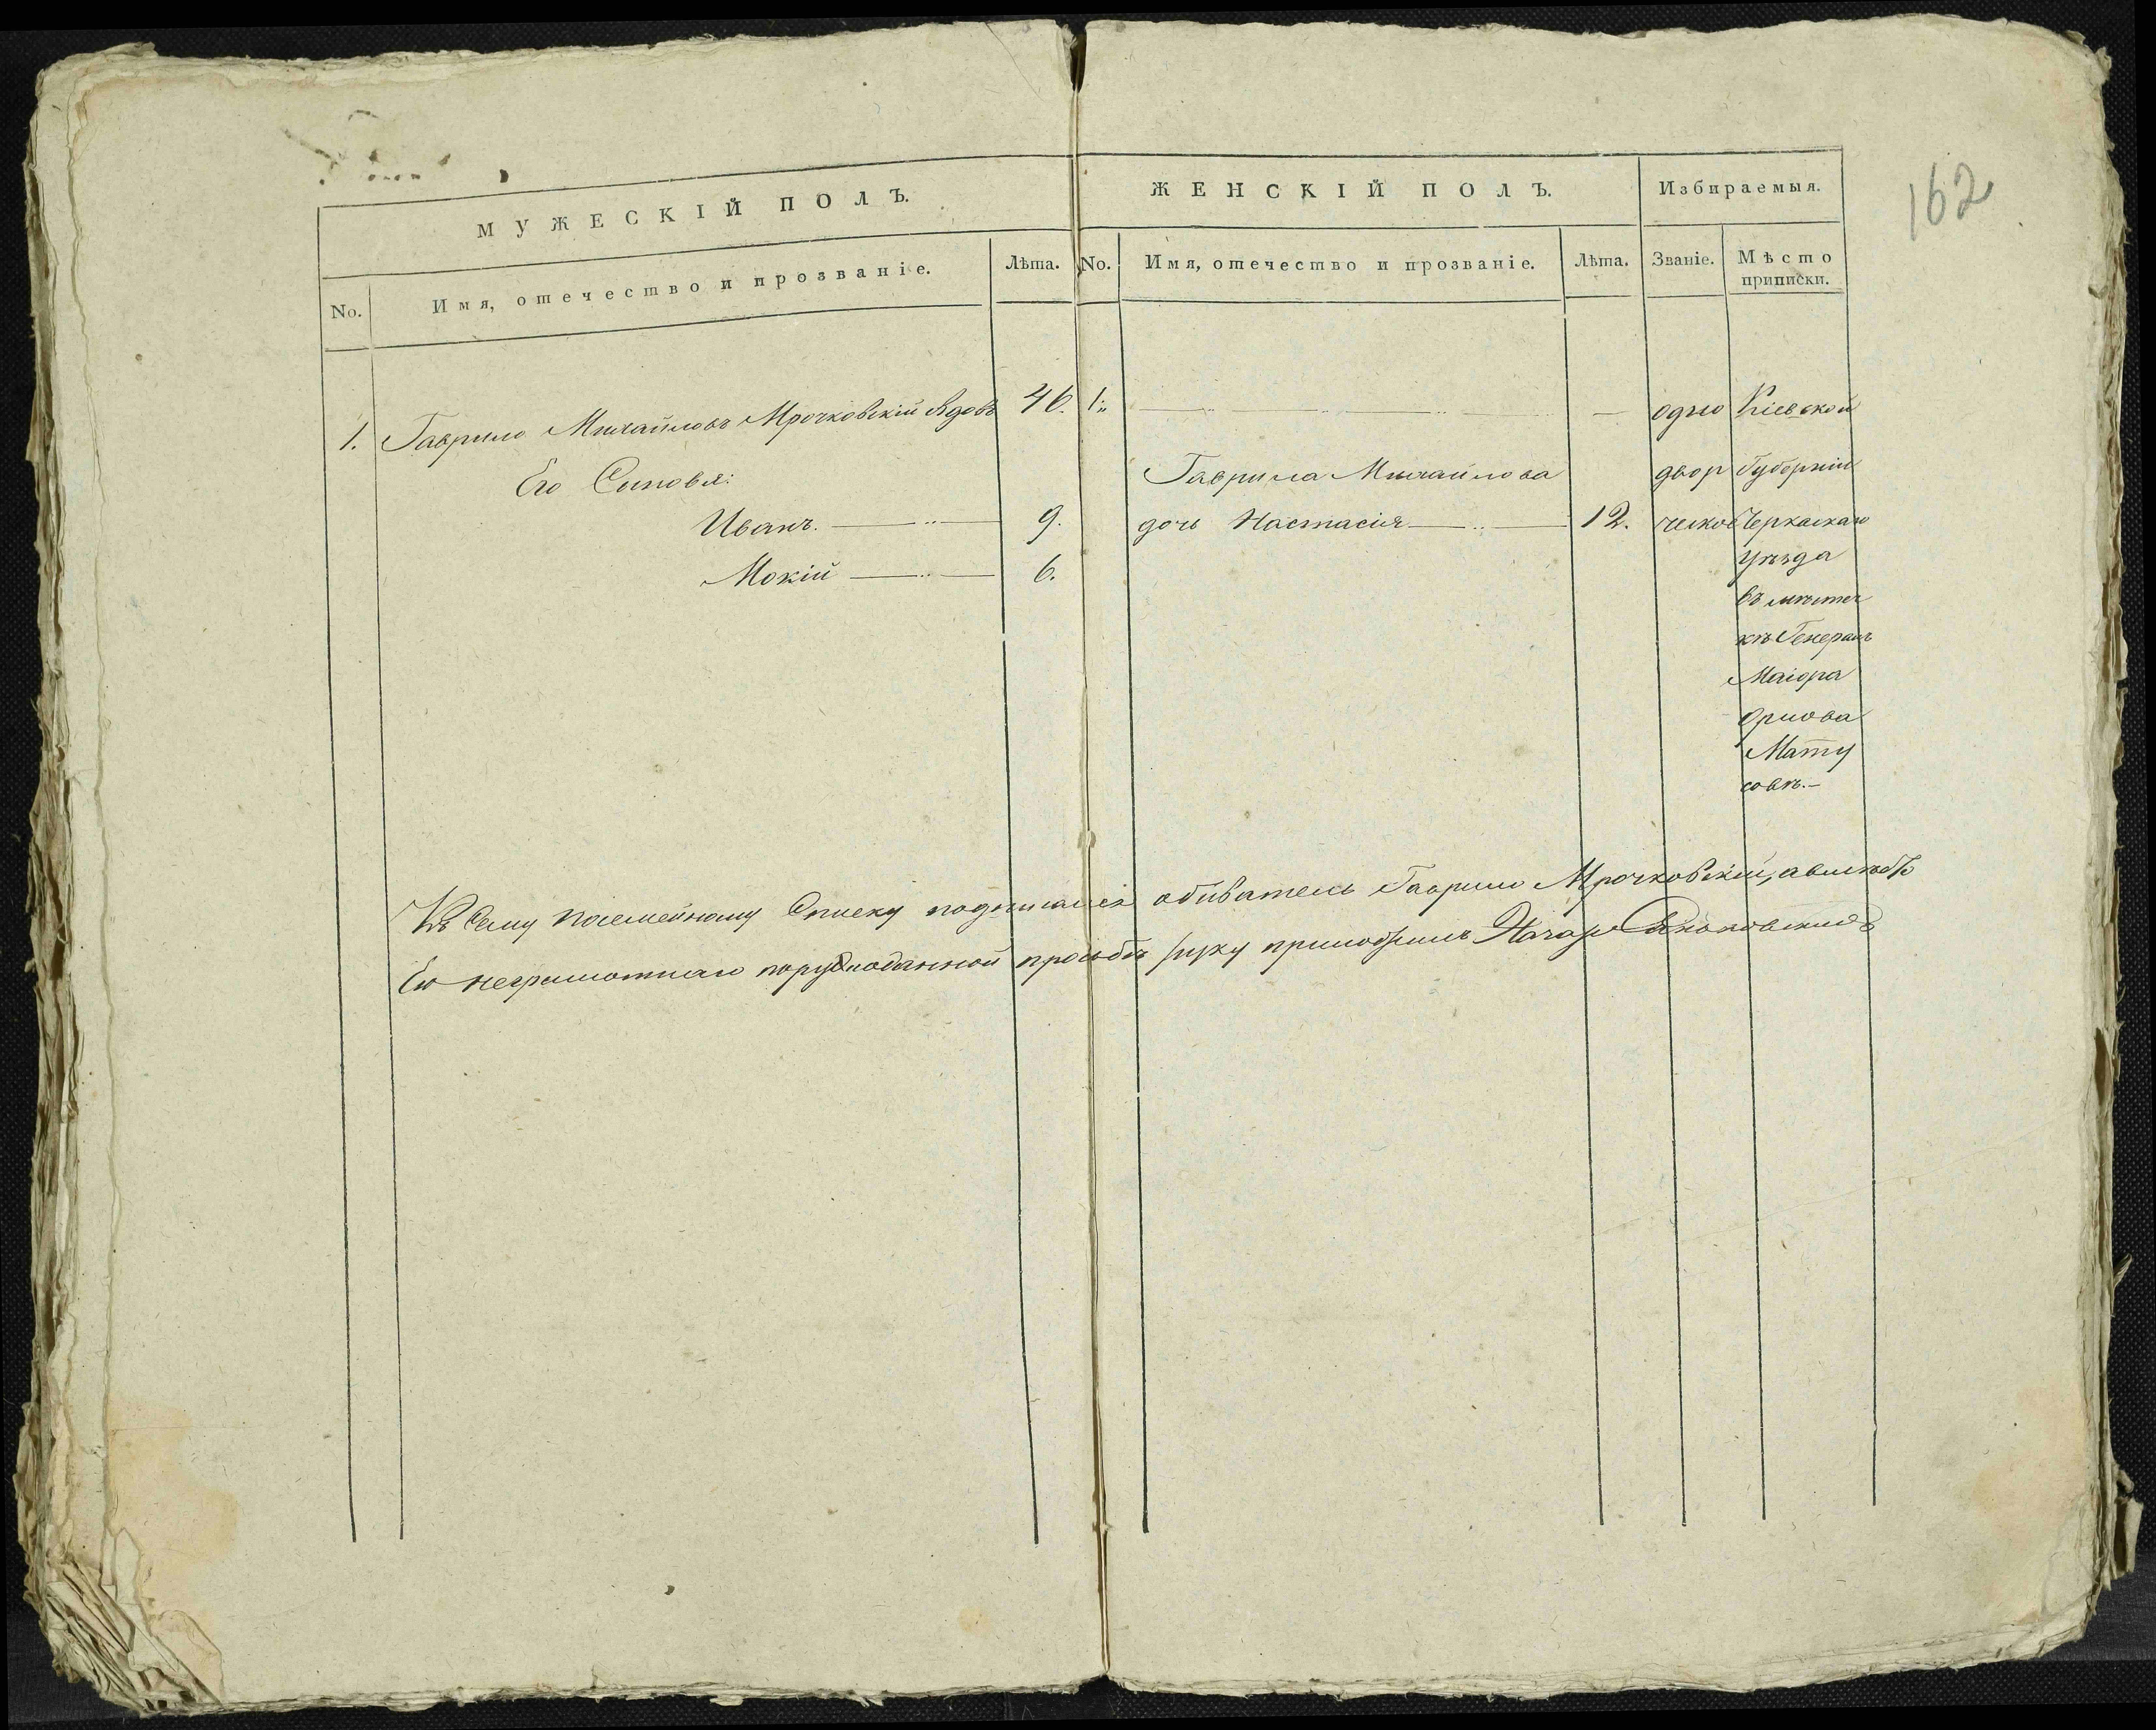 162
МУЖЕСКІЙ ПОЛЪ.
ЖЕНСКІЙ ПОЛЪ.
Избираемыя.
No.
Имя, отечество и прозваніе.
Лѣта.
No.
Имя, отечество и прозваніе.
Лѣта.
Званіе.
Мѣсто
приписки.
1. Гаврило Михайловъ Мрочковскій вдовъ 46.
Его Сыновья:
Иванъ. 9.
Мокій 6.
1.
Гаврила Михайлова
дочь Настасія 12.
одно
двор
ческое
Кіевской
Губерніи
Черкаскаго
Уѣзда
въ мѣстеч
кѣ Генералъ
Маіора
Орлова
Мату
совѣ.
Къ Сему посемейному Списку подписался обыватель Гаврило Мрочковскій, а вместо
Его неграмотнаго по рукоданной прозьбѣ руку приложилъ